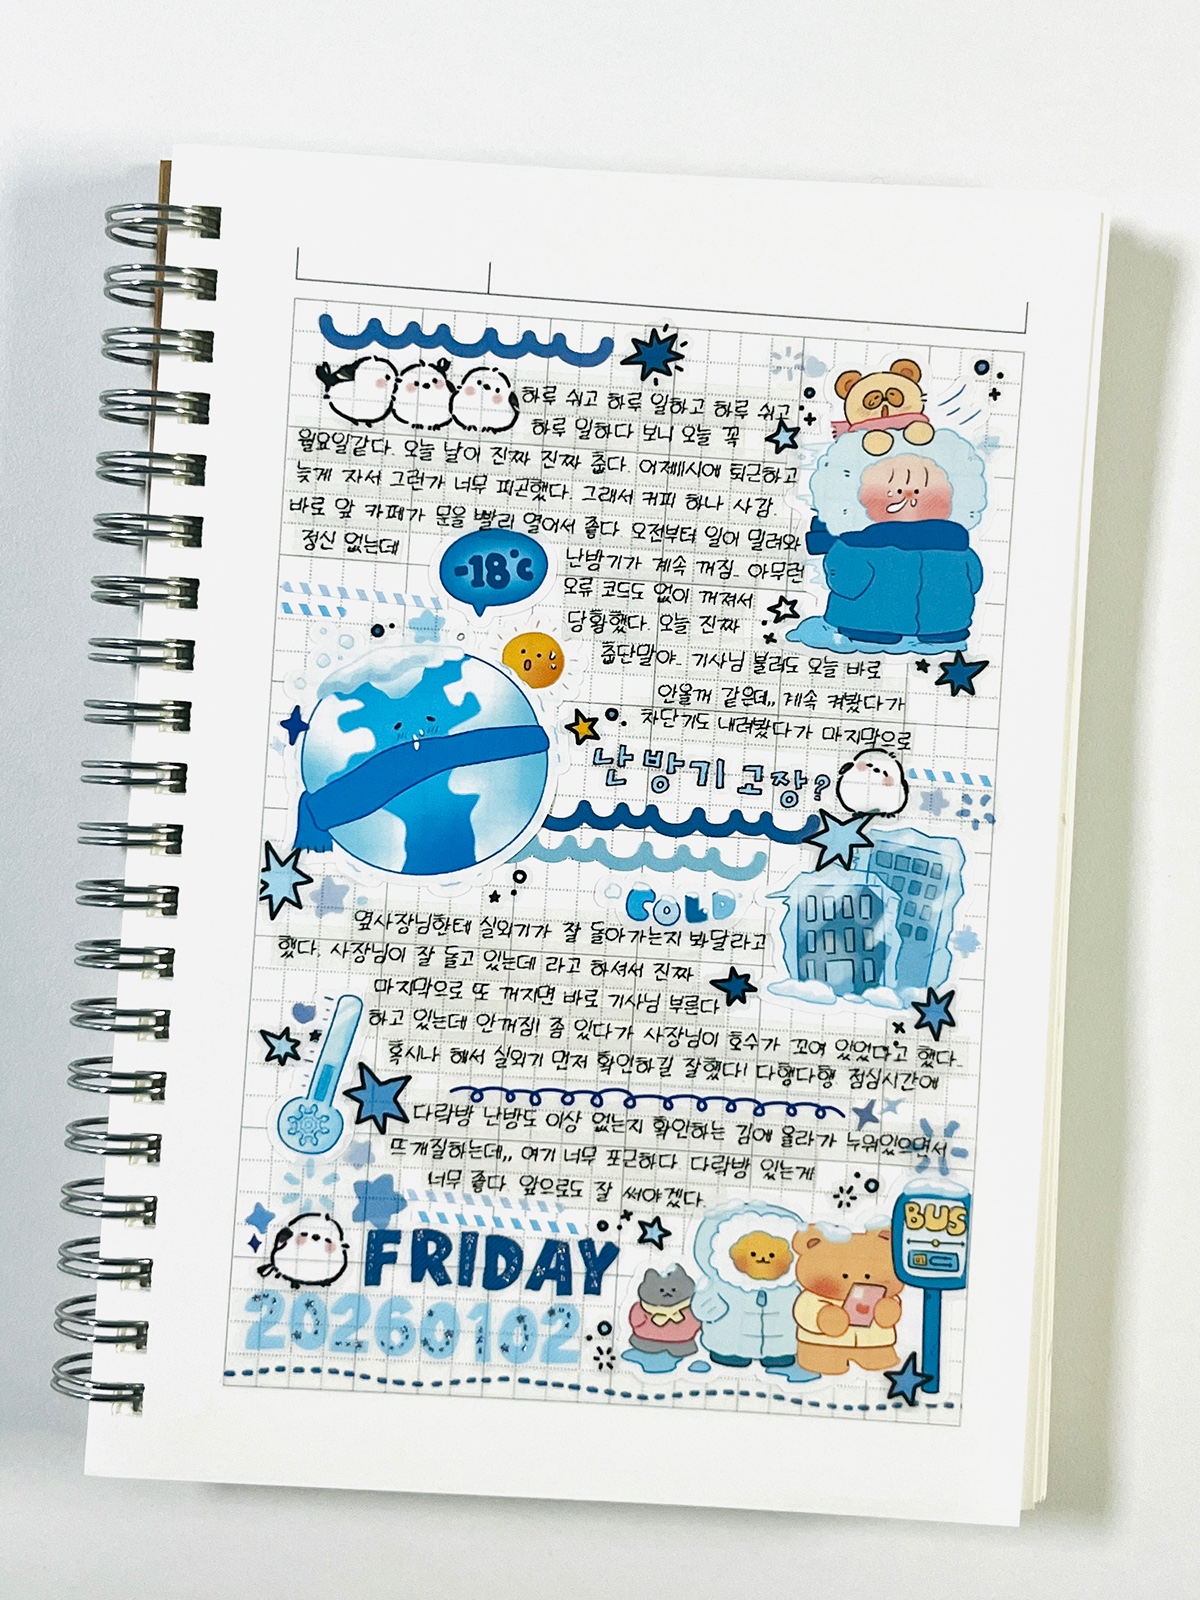 하루 쉬고 하루 일하고 하루 쉬고
하루 일하다 보니 오늘 꼭
월요일같다. 오늘 날이 진짜 진짜 춥다. 어제11시에 퇴근하고
늦게 자서 그런가 너무 피곤했다. 그래서 커피 하나 사감.
바로 앞 카페가 문을 빨리 열어서 좋다. 오전부터 일이 밀려와
정신 없는데
-18°C
난방기가 계속 꺼짐.. 아무런
오류 코드도 없이 꺼져서
당황했다. 오늘 진짜
춥단말야.. 기사님 불러도 오늘 바로
안올꺼 같은데,, 계속 켜봤다가
차단기도 내려봤다가 마지막으로
난방기고장?
COLD
옆사장님한테 실외기가 잘 돌아가는지 봐달라고
했다. 사장님이 잘 돌고 있는데 라고 하셔서 진짜
마지막으로 또 꺼지면 바로 기사님 부른다
하고 있는데 안꺼짐! 좀 있다가 사장님이 호수가 꼬여 있었다고 했다..
혹시나 해서 실외기 먼저 확인하길 잘했다! 다행다행 점심시간에
다락방 난방도 이상 없는지 확인하는 김에 올라가 누워있으면서
뜨개질하는데,, 여기 너무 포근하다. 다락방 있는게
너무 좋다. 앞으로도 잘 써야겠다.
BUS
FRIDAY
20260102